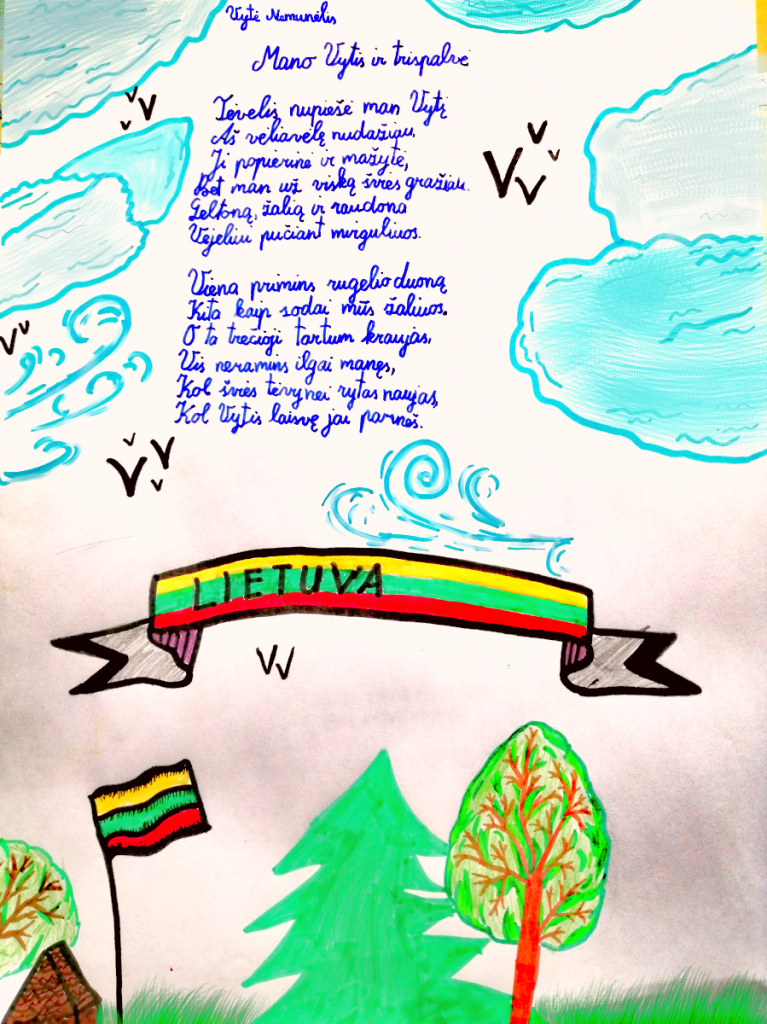 Vytė Nemunėlis
Mano Vytis ir trispalvė
Tėvelis nupiešė man Vytį
Aš vėliavėlę nudažiau,
Ji popierinė ir mažytė,
Bet man už viską švies gražiau.
Geltoną, žalią ir raudoną
Vėjeliui pučiant mirguliuos.
Viena primins rugelio duoną
Kita kaip sodai mūs žaliuos.
O ta trečioji tartum kraujas,
Vis neramins ilgai manęs,
Kol švies tėvynei rytas naujas,
Kol Vytis laisvę jai parneš.
LIETUVA